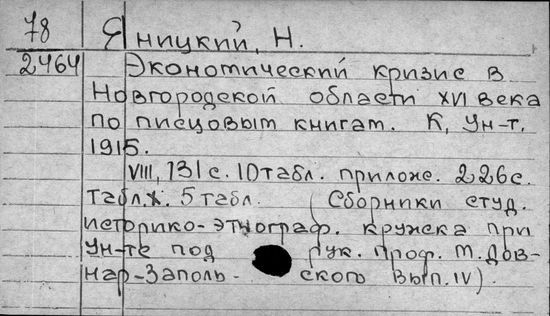 78 Яницкий, Н.
2464 Экономический кризис в
Новгородской области XVI века
по писцовым книгам. К, Ун-т.
1915.
VIII, 131 с. 10 табл. прилож. 226 с.
табл.X. 5 табл. (Сборники студ.
историко-этнограф. кружка при
ун-те под рук. проф. М. Дов-
нар-Заполь- ского вып. IV).